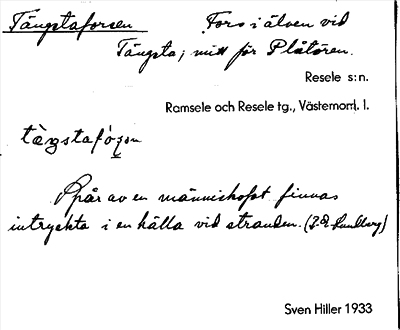 Tängstaforsen Fors i älven vid
Tängsta; mitt för Plåtören.
Resele s:n.
Ramsele och Resele tg., Västernorrl. l.
tängstafòrsen
Spår av en människofot finnas
intryckta i en hälla vid stranden. (J. E. Sundberg)
Sven Hiller 1933